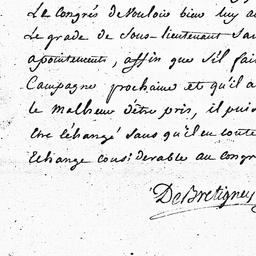 Le Congrés de Vouloir bien luy a
Le grade de Sous-lieutenant San
apointements, affin que s'il fai
Campagne prochaine et qu'il a
le malheur d'être pris, il puis
être échangé Sans qu'il en coute
Echange considerable au congr
DeBretigney